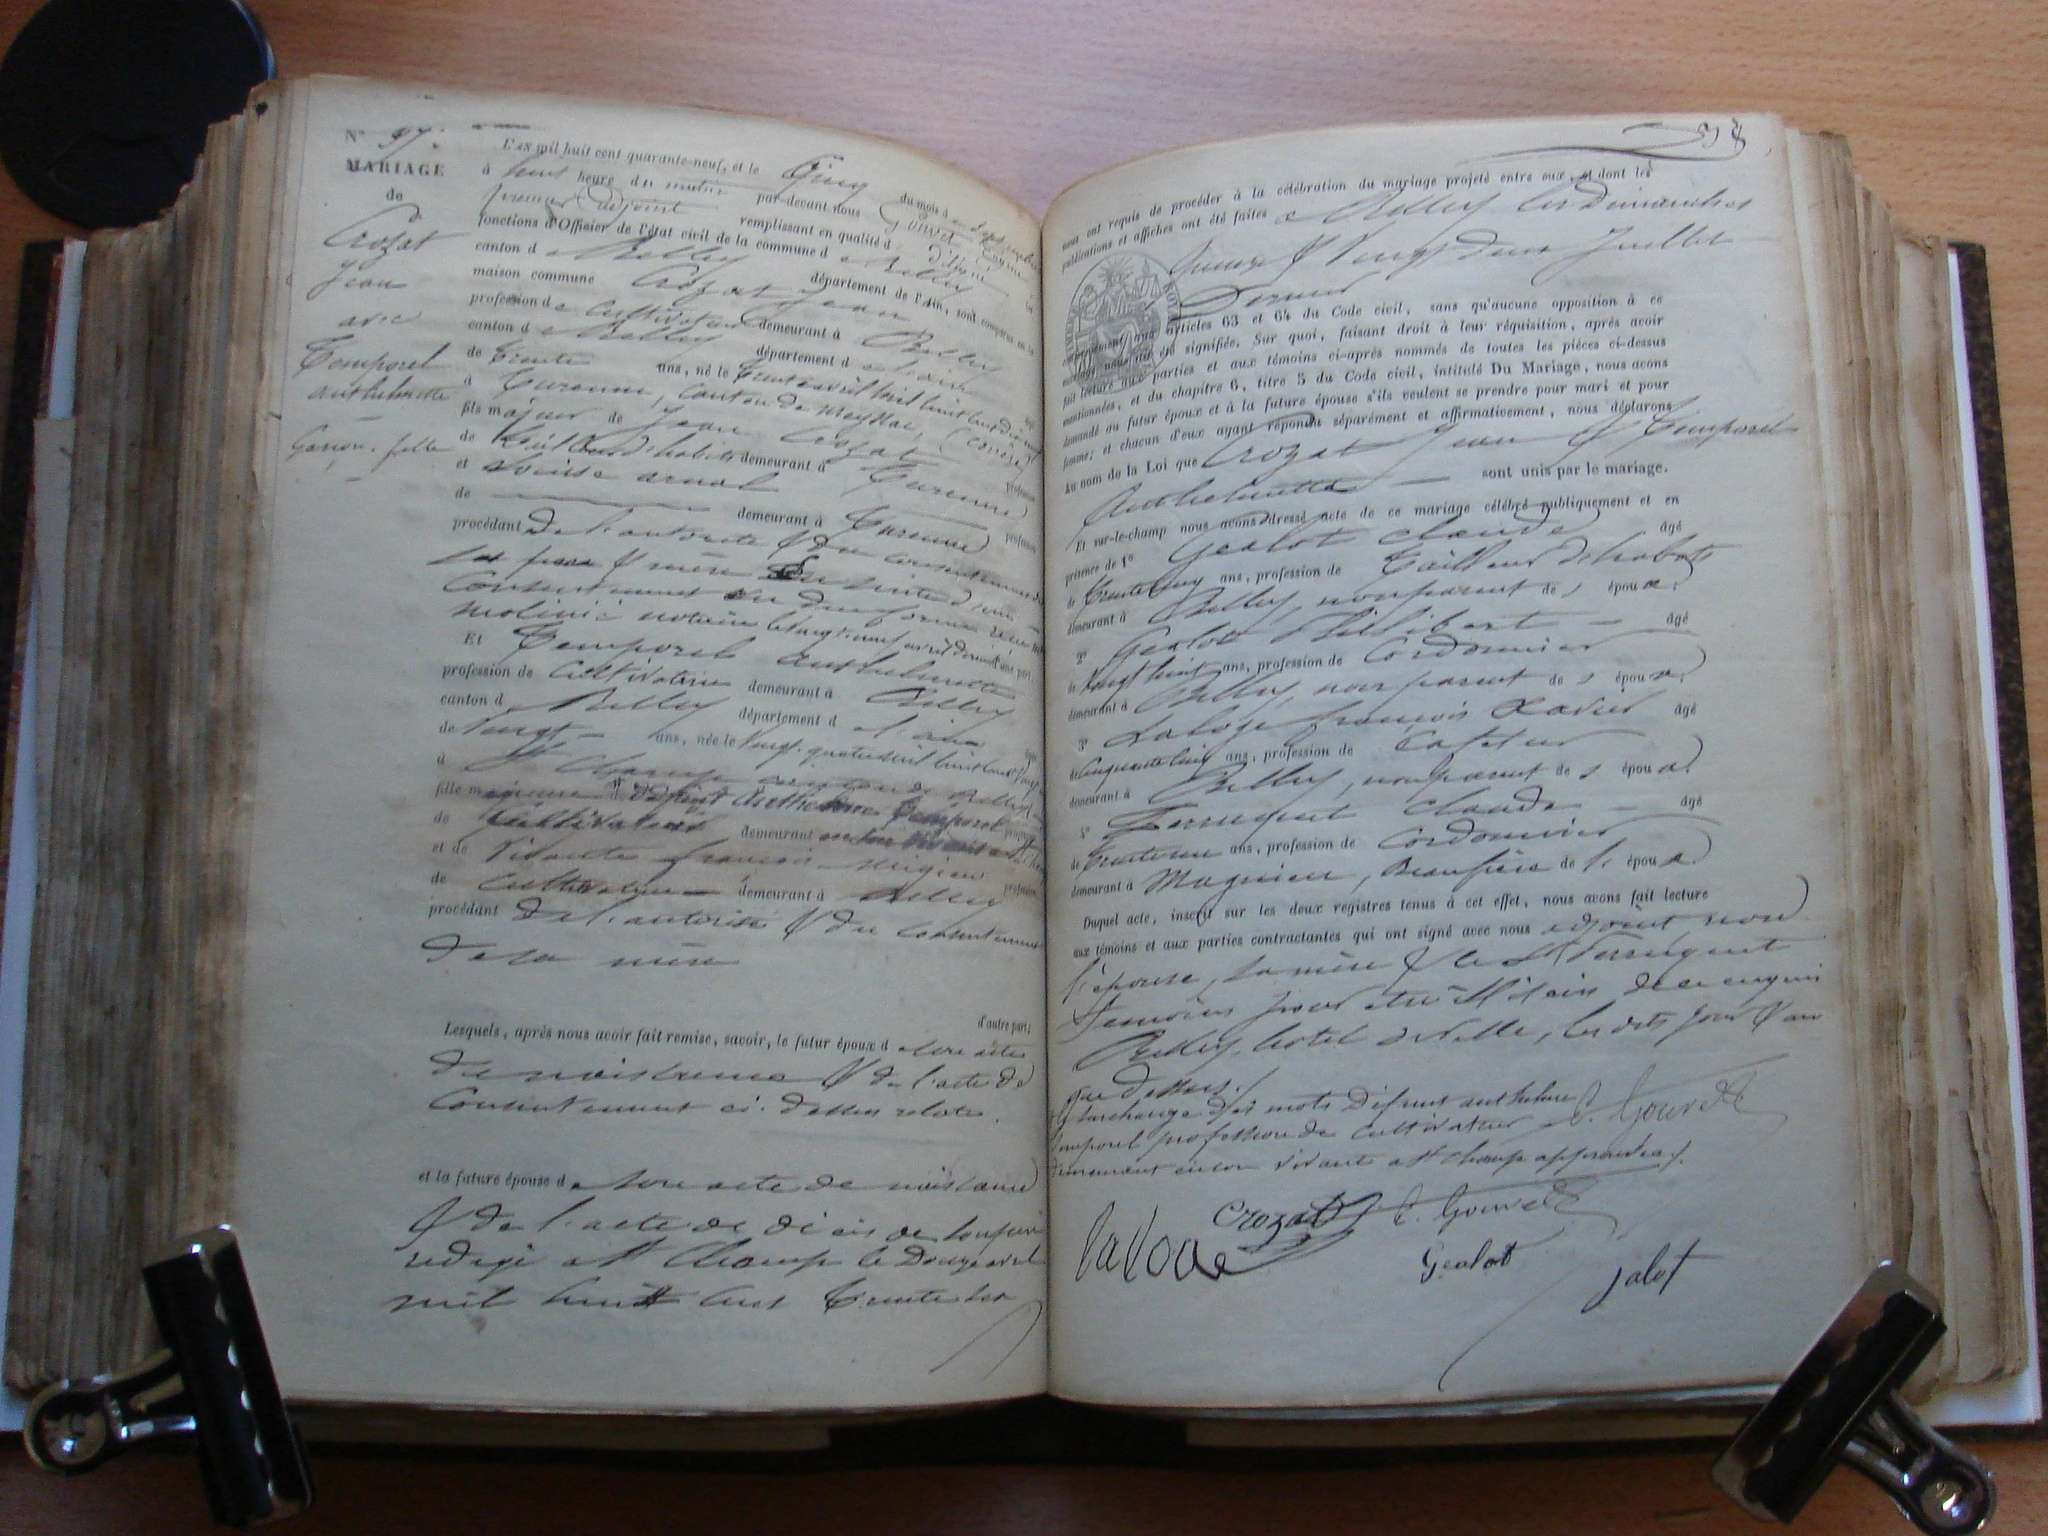 N° 37.
MARIAGE
de
Crozat
Jean
avec
Temporel
Anthelmette
Garçon. fille
L'an mil huit cent quarante-neuf, et le Cinq du mois de Septembre
à huit heure du matin par devant nous Gouvet
premier adjoint remplissant en qualité d
fonctions d'Officier de l'état civil de la commune de Belley
canton de Belley département de l'Ain, sont comparus en la
maison commune Crozat Jean
profession de Cultivateur demeurant à Belley
canton de Belley département de l'ain
de Trente ans, né le
à Turenne, Canton de Meyssac, (Corrèze)
fils majeur de Jean Crozat profession
de Tailleur d'habits demeurant à Turenne
et Louise Arnal profession
de demeurant à Turenne
procédant de l'autorité & du consentement de
ses père & mère
consentement
notaire le vingt neuf avril dernier d'une part;
Et Temporel Anthelmette
profession de Cultivatrice demeurant à Belley
canton de Belley département de l'ain
de Vingt ans, née le vingt quatre
à St Champ canton de Belley
fille majeure de défunt Anthelme Temporel profession
de Cultivateur demeurant en son vivant à St Champ
et de vivante françoise profession
de Cultivatrice demeurant à Belley
procédant de l'autorité & du consentement
de sa mère
d'autre part;
Lesquels, après nous avoir fait remise, savoir, le futur époux de son acte
de naissance & de l'acte de
Consentement ci-dessus relaté.
et la future épouse de son acte de naissance
& de l'acte de décès de son père
rédigé à St Champ le Douze avril
mil huit cent trente
38
nous ont requis de procéder à la célébration du mariage projeté entre eux, et dont les
publications et affiches ont été faites à Belley les Dimanches
quinze & Vingt deux Juillet
Dernier
conformément aux articles 63 et 64 du Code civil, sans qu'aucune opposition à ce
mariage nous ait été signifiée. Sur quoi, faisant droit à leur réquisition, après avoir
fait lecture aux parties et aux témoins ci-après nommés de toutes les pièces ci-dessus
mentionnées, et du chapitre 6, titre 5 du Code civil, intitulé Du Mariage, nous avons
demandé au futur époux et à la future épouse s'ils veulent se prendre pour mari et pour
femme; et chacun d'eux ayant répondu séparément et affirmativement, nous déclarons
au nom de la Loi que Crozat Jean & Temporel
Anthelmette sont unis par le mariage.
Et sur-le-champ nous avons dressé acte de ce mariage célébré publiquement et en
présence de 1° Gealot Claude âgé
de trente cinq ans, profession de Tailleur d'habits
demeurant à Belley, non parent de s époux.
2° Gealot Philibert âgé
de vingt huit ans, profession de Cordonnier
demeurant à Belley, non parent de s époux.
3° françois Xavier âgé
de Cinquante cinq ans, profession de Cafetier
demeurant à Belley, non parent de s époux.
4° Ferruquet Claude âgé
de trente un ans, profession de Cordonnier
demeurant à Magnieu, Beaufrère de l' époux
Duquel acte, inscrit sur les deux registres tenus à cet effet, nous avons fait lecture
aux témoins et aux parties contractantes qui ont signé avec nous adjoint non
l'épouse, sa mère & le Sr Ferruquet
témoins pour être illitérés de ce enquis
Belley, hotel de ville, les dits jour & an
que dessus.
surcharge des mots Défunt anthelme
temporel profession de cultivateur
demeurant en son vivant à St Champ approuvée.
E. Gouvet
Crozat
E. Gouvet
Gealot
jalot